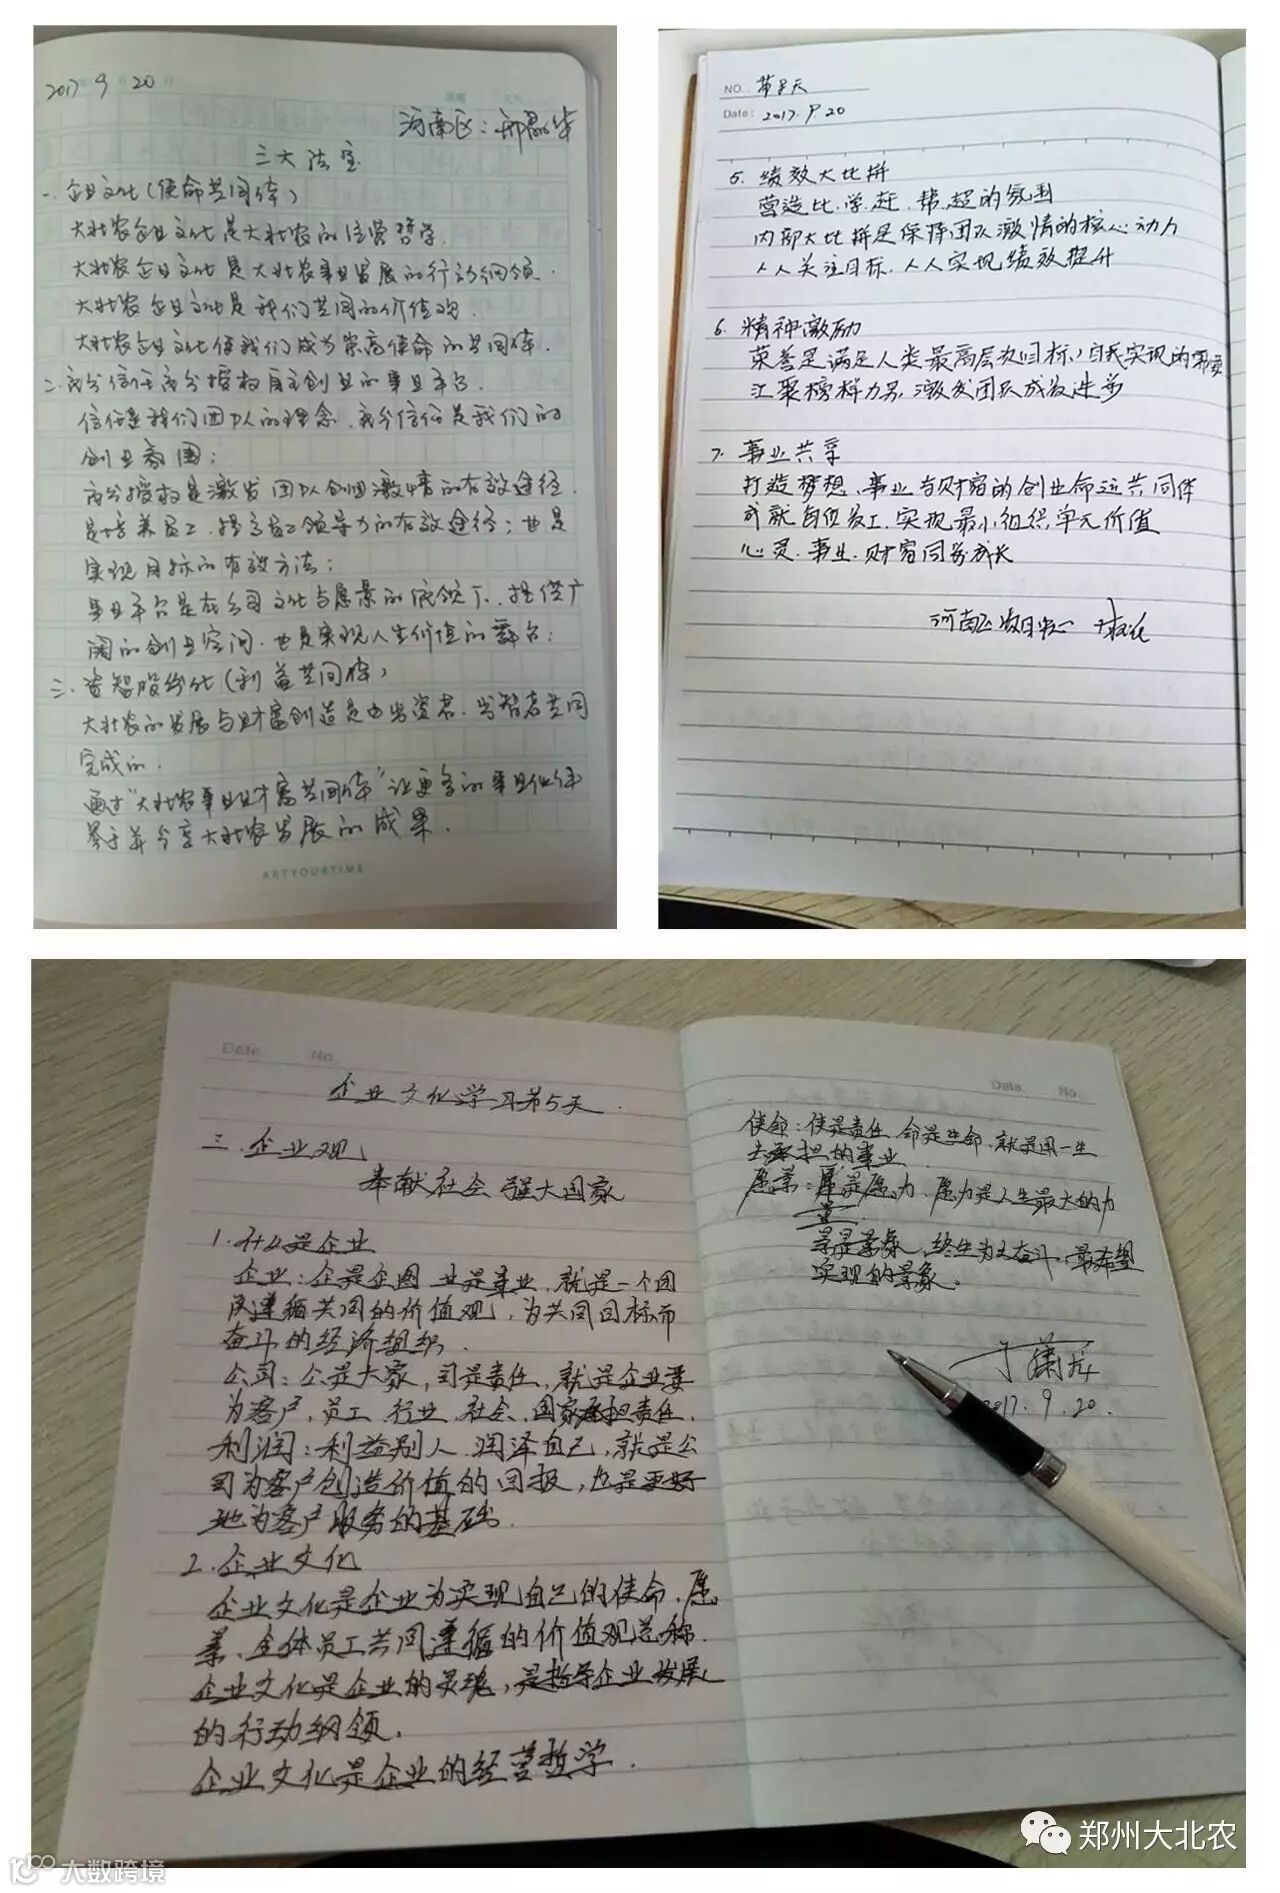 2017 9月20日
河南区:
三大法宝
一、企业文化(使命共同体)
大北农企业文化是大北农的经营哲学.
大北农企业文化是大北农事业发展的行动纲领.
大北农企业文化是我们共同的价值观.
大北农企业文化使我们成为崇高使命的共同体.
二、充分信任充分授权自主创业的事业平台.
信任是我们团队的理念,充分信任是我们的
创业氛围;
充分授权是激发团队创业激情的有效途径.
是培养员工,提高员工领导力的有效途径;也是
实现目标的有效方法;
事业平台是在公司文化与愿景的统领下,提供广
阔的创业空间,也是实现人生价值的舞台;
三、资智股份化(利益共同体)
大北农的发展与财富创造是由出资者、出智者共同
完成的.
通过“大北农事业财富共同体”让更多的事业伙伴
参与并分享大北农发展的成果.
ARTYOURTIME
NO. 第5天
Date: 2017.9.20
5. 绩效大比拼
营造比.学.赶.帮.超的氛围
内部大比拼是保持团队激情的核心动力
人人关注目标.人人实现绩效提升
6. 精神激励
荣誉是满足人类最高层次目标,自我实现的需要
汇聚榜样力量,激发团队成员进步
7. 事业共享
打造梦想、事业与财富的创业命运共同体
成就每位员工.实现最小组织单元价值
心灵.事业.财富同步成长
河南区
Date. No.
企业文化学习第5天.
三.企业观
奉献社会 强大国家
1.什么是企业
企业:企是企图 业是事业,就是一个团
队遵循共同的价值观,为共同目标而
奋斗的经济组织.
公司:公是大家,司是责任,就是企业要
为客户、员工、行业、社会、国家承担责任.
利润:利益别人,润泽自己,就是公
司为客户创造价值的回报,也是更好
地为客户服务的基础.
2.企业文化
企业文化是企业为实现自己的使命.愿
景、全体员工共同遵循的价值观总称.
企业文化是企业的灵魂,是指导企业发展
的行动纲领.
企业文化是企业的经营哲学.
Date. No.
使命:使是责任,命是生命,就是用一生
去承担的事业.
愿景:愿是愿力,愿力是人生最大的力
量.
景是景象,终生为之奋斗,最希望
实现的景象。
2017.9.20.
郑州大北农
大数跨境